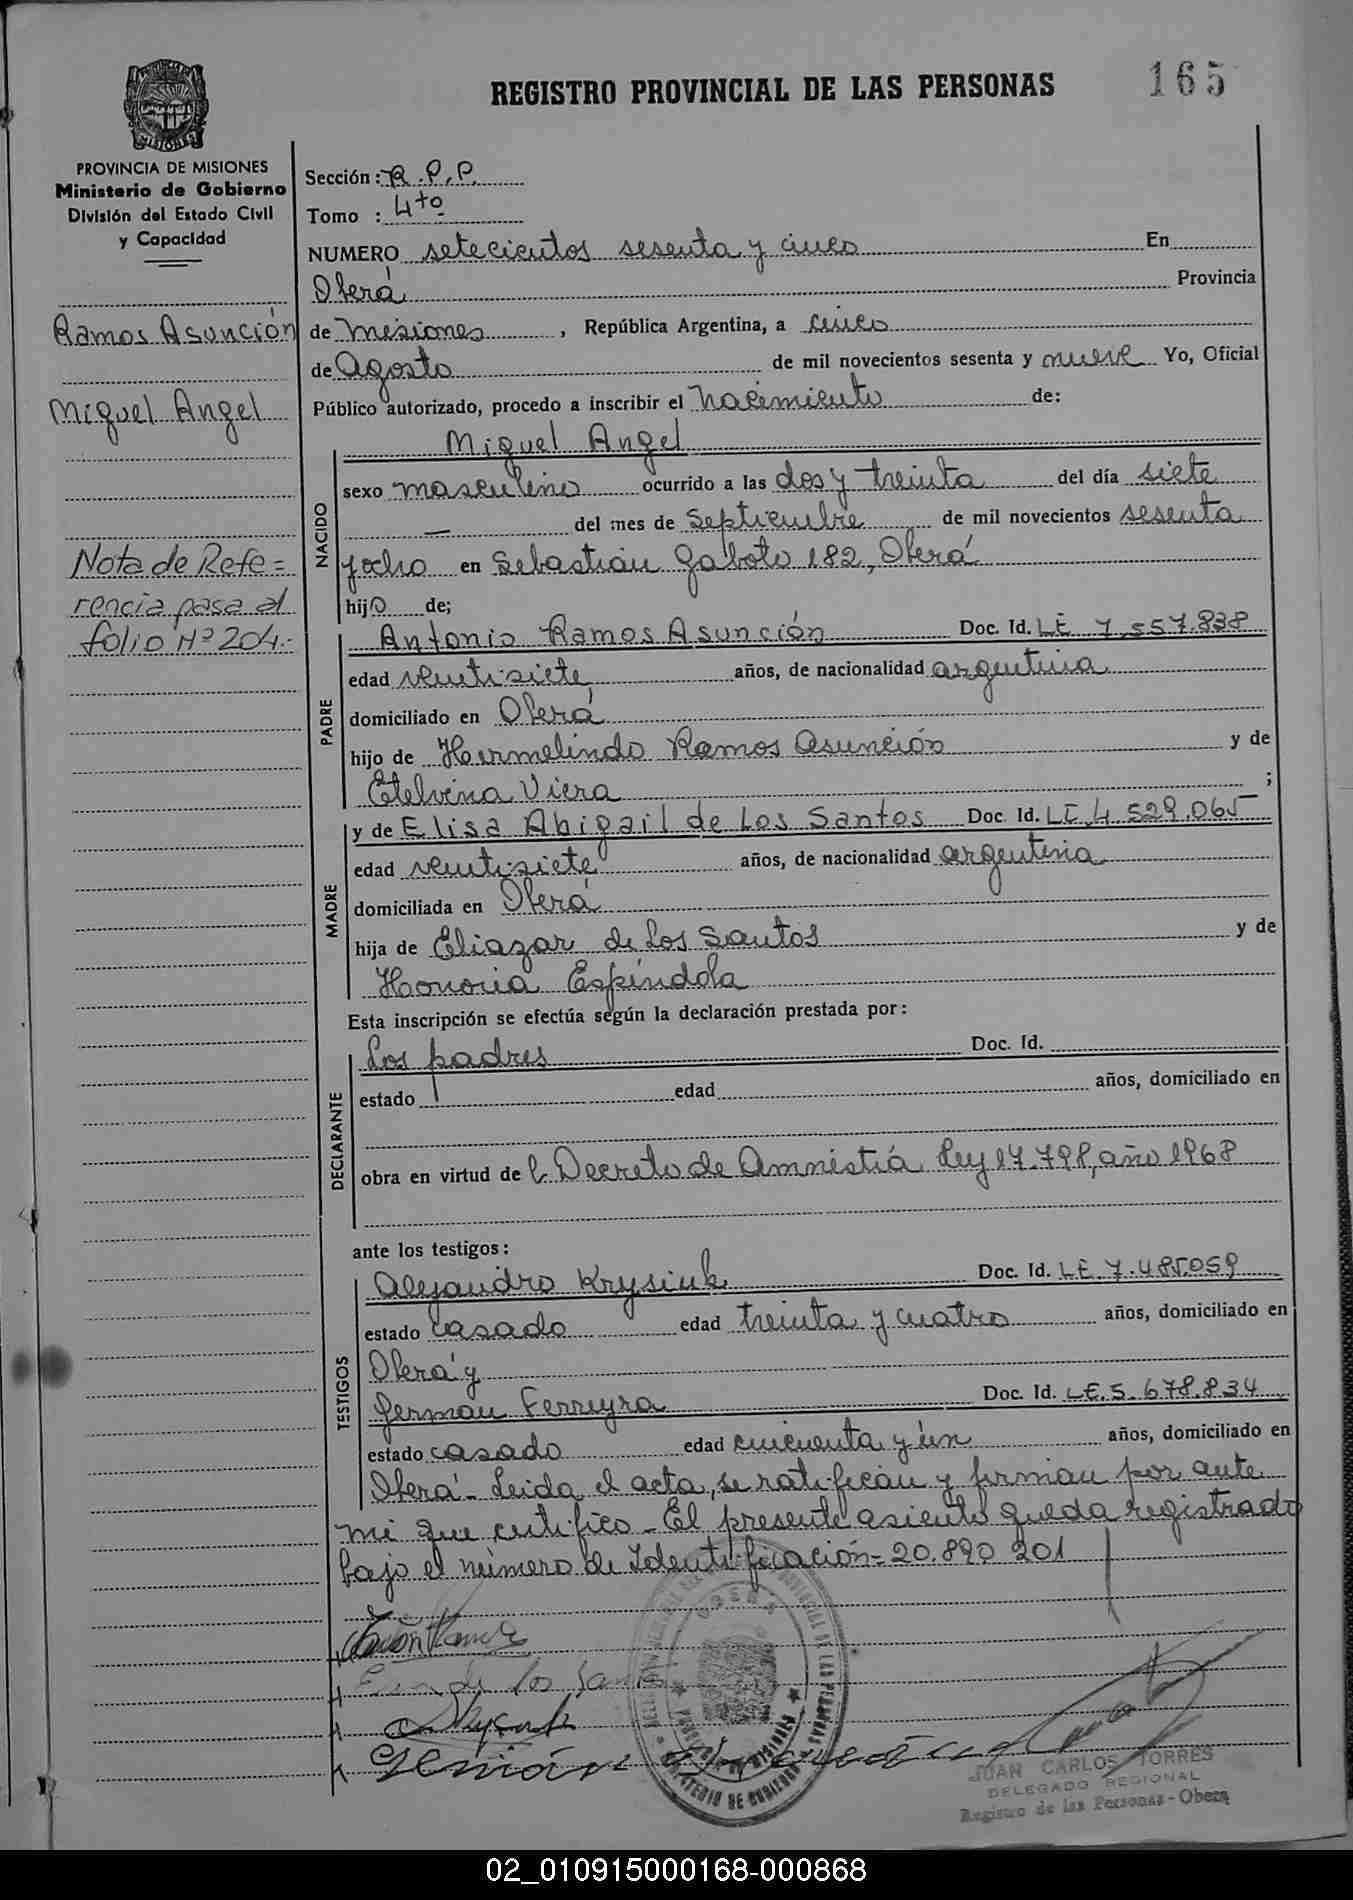 165
REGISTRO PROVINCIAL DE LAS PERSONAS
PROVINCIA DE MISIONES
Ministerio de Gobierno
División del Estado Civil
y Capacidad
Ramos Asunción
Miguel Angel
Nota de Refe=
rencia pasa al
folio Nº 204.-
Sección: R.P.P.
Tomo : 4to
NUMERO setecientos sesenta y cinco En
Oberá Provincia
de Misiones, República Argentina, a cinco
de Agosto de mil novecientos sesenta y nueve Yo, Oficial
Público autorizado, procedo a inscribir el Nacimiento de:
NACIDO
Miguel Angel
sexo masculino ocurrido a las dos y treinta del día siete
— del mes de Septiembre de mil novecientos sesenta
y ocho en Sebastián Gaboto 182, Oberá
hijo de;
PADRE
Antonio Ramos Asunción Doc. Id. LE 7.557.838
edad veintisiete años, de nacionalidad argentina
domiciliado en Oberá
hijo de Hermelindo Ramos Asunción y de
Etelvina Viera ;
MADRE
y de Elisa Abigail de Los Santos Doc. Id. LC.4 529.065
edad veintisiete años, de nacionalidad argentina
domiciliada en Oberá
hija de Eliazar de Los Santos y de
Honoria Espíndola
Esta inscripción se efectúa según la declaración prestada por:
DECLARANTE
Los padres Doc. Id.
estado edad años, domiciliado en
obra en virtud de l. Decreto de Amnistía Ley 17.798, año 1968
ante los testigos:
TESTIGOS
Alejandro Krysiuk Doc. Id. LE.7.485.059
estado casado edad treinta y cuatro años, domiciliado en
Oberá y
German Ferreyra Doc. Id. LE.5.678.834
estado casado edad cincuenta y un años, domiciliado en
Oberá - Leida el acta, se ratifican y firman por ante
mi que certifico - El presente asiento queda registrado
bajo el número de Identificación = 20.890 201
de los San
Germán
JUAN CARLOS TORRES
DELEGADO REGIONAL
Registro de las Personas - Oberá
02_010915000168-000868